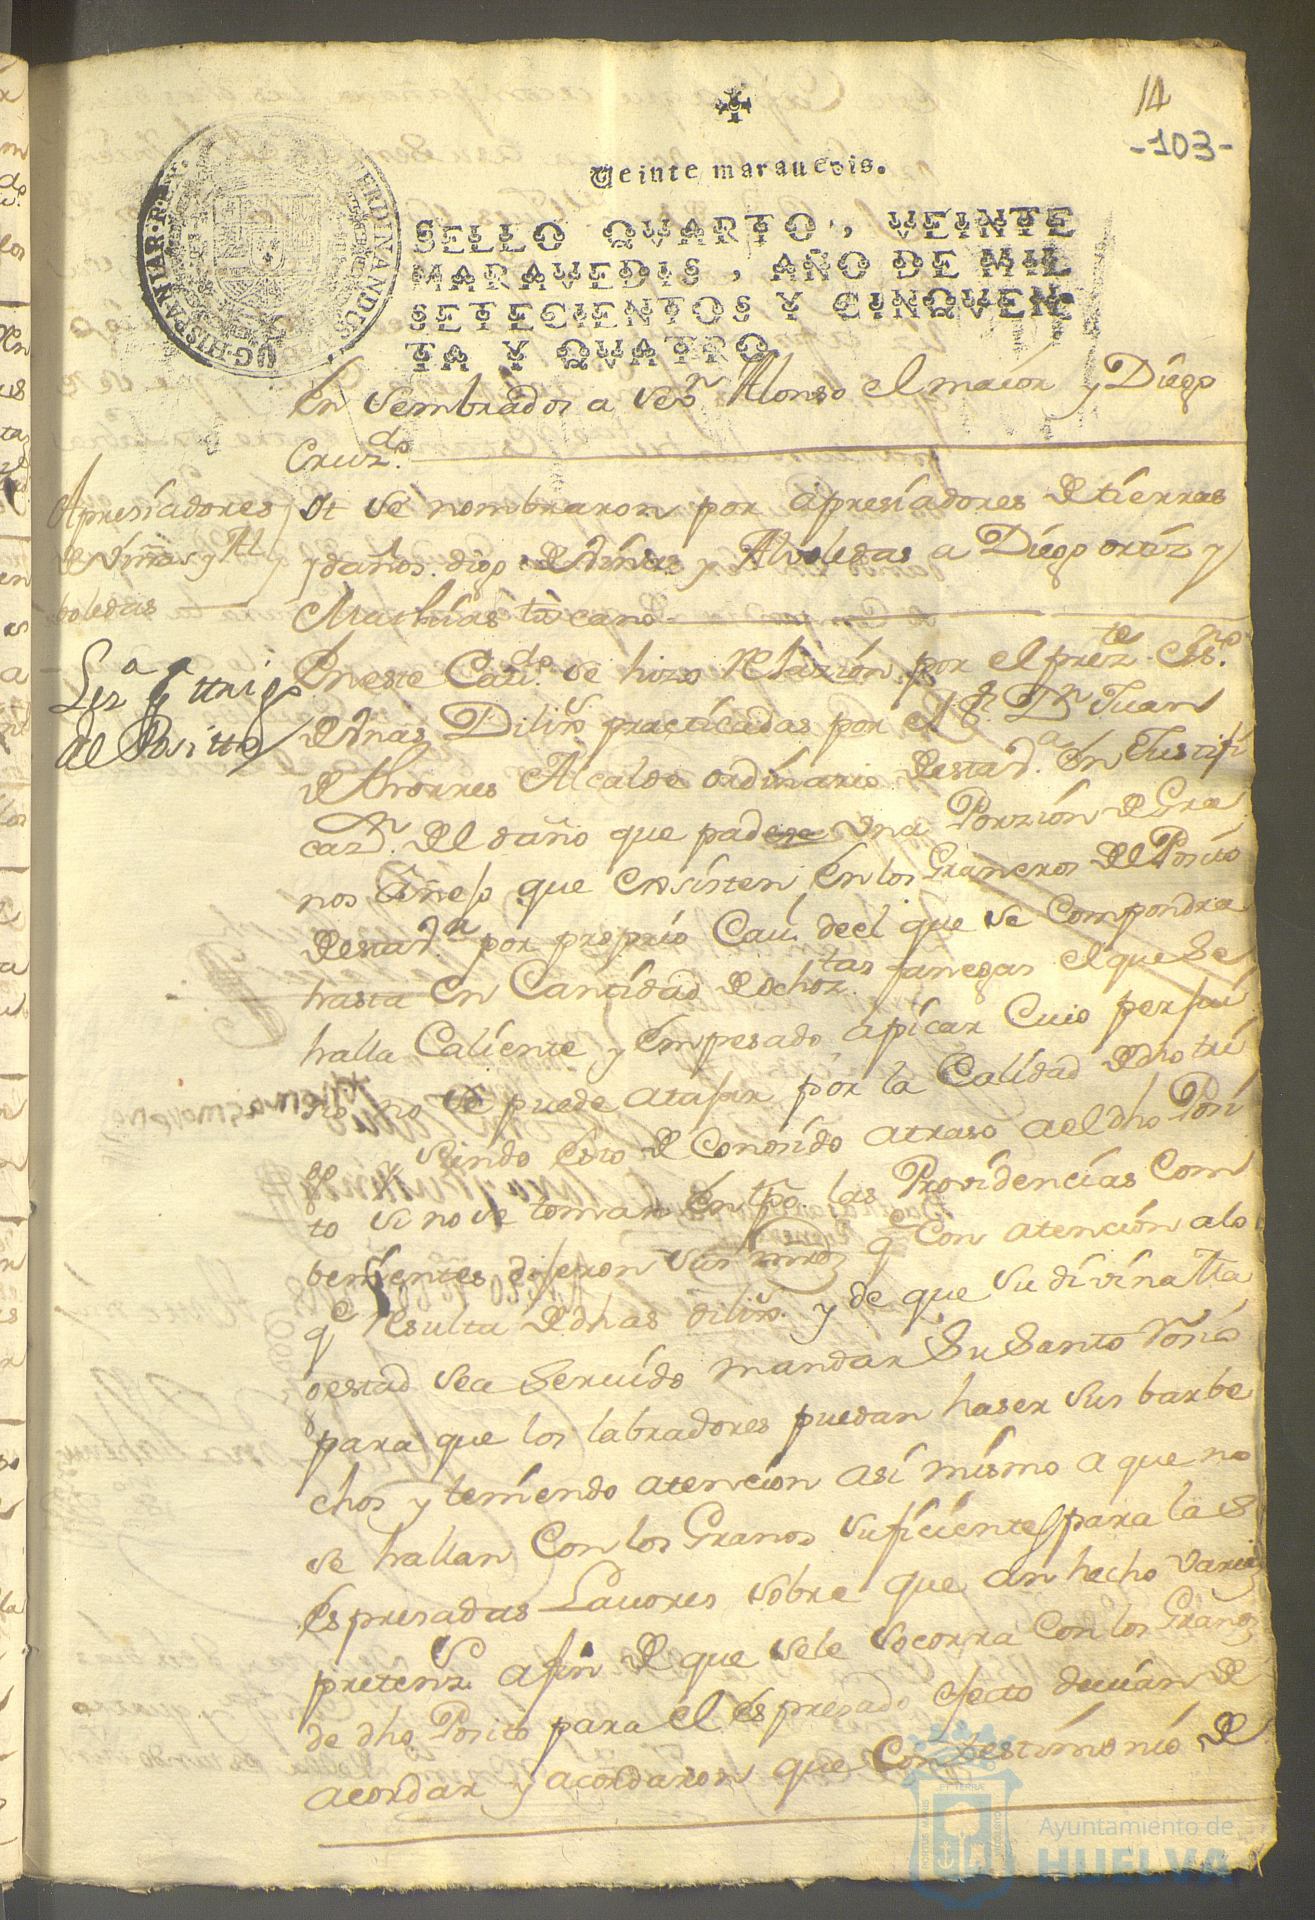 14
-103-
Veinte marauedis.
SELLO QVARTO, VEINTE
MARAVEDIS, AÑO DE MIL
SETECIENTOS Y CINQVEN
TA Y QVATRO.
HISPANIAR. R
FERDINANDUS
En Sembrados a Sevn Alonso el maior y Diego
Cruzdo.
Apresiadores
de viñas y Al
boledas
Ot se nombraron por apresiadores de tierras
y daños digo de viñas y Alboledas a Diego ortiz y
Mathias tuscano
Lizª pª ttrigo
del Positto
En este Cavdo se hizo Relazion por el prezte Essno
de Unas Dilixs practicadas por el Sr Dn Juan
de thorres Alcalde ordinario de esta va En Justifi
cazn del daño que padese Una Porzion de Gra
nos añejo que Ecsisten En los Graneros del Posito
de esta va por proprio Cau deel que se Compondra
hasta En Cantidad de ochoztas fanegas el que se
halla Caliente y Empesado apicar Cuio perjui
cio no se puede atajar por la Calidad de dho tri
go y siendo Esto de Conosido atraso a el dho Posi
to si no se toman En tpo las Providencias Com
benientes dijeron sus mrds qe Con atencion alo
qe resulta de dhas dilixs y de que su divina Ma
gestad sea Seruido mandar Su Santo Rosio
para que los labradores puedan haser sus barbe
chos y teniendo atencion asi mismo a que no
se hallan Con los Granos suficientes para las
Espresadas Lauores sobre que an hecho varias
pretenz afin de que sele socorra Con los Granos
de dho Posito para el espresado efecto deuian de
acordar y acordaron que Con testimonio de
Ayuntamiento de
HUELVA